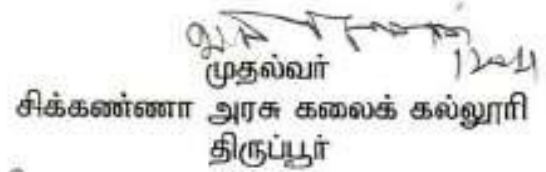 முதல்வர்
சிக்கண்ணா அரசு கலைக் கல்லூரி
திருப்பூர்